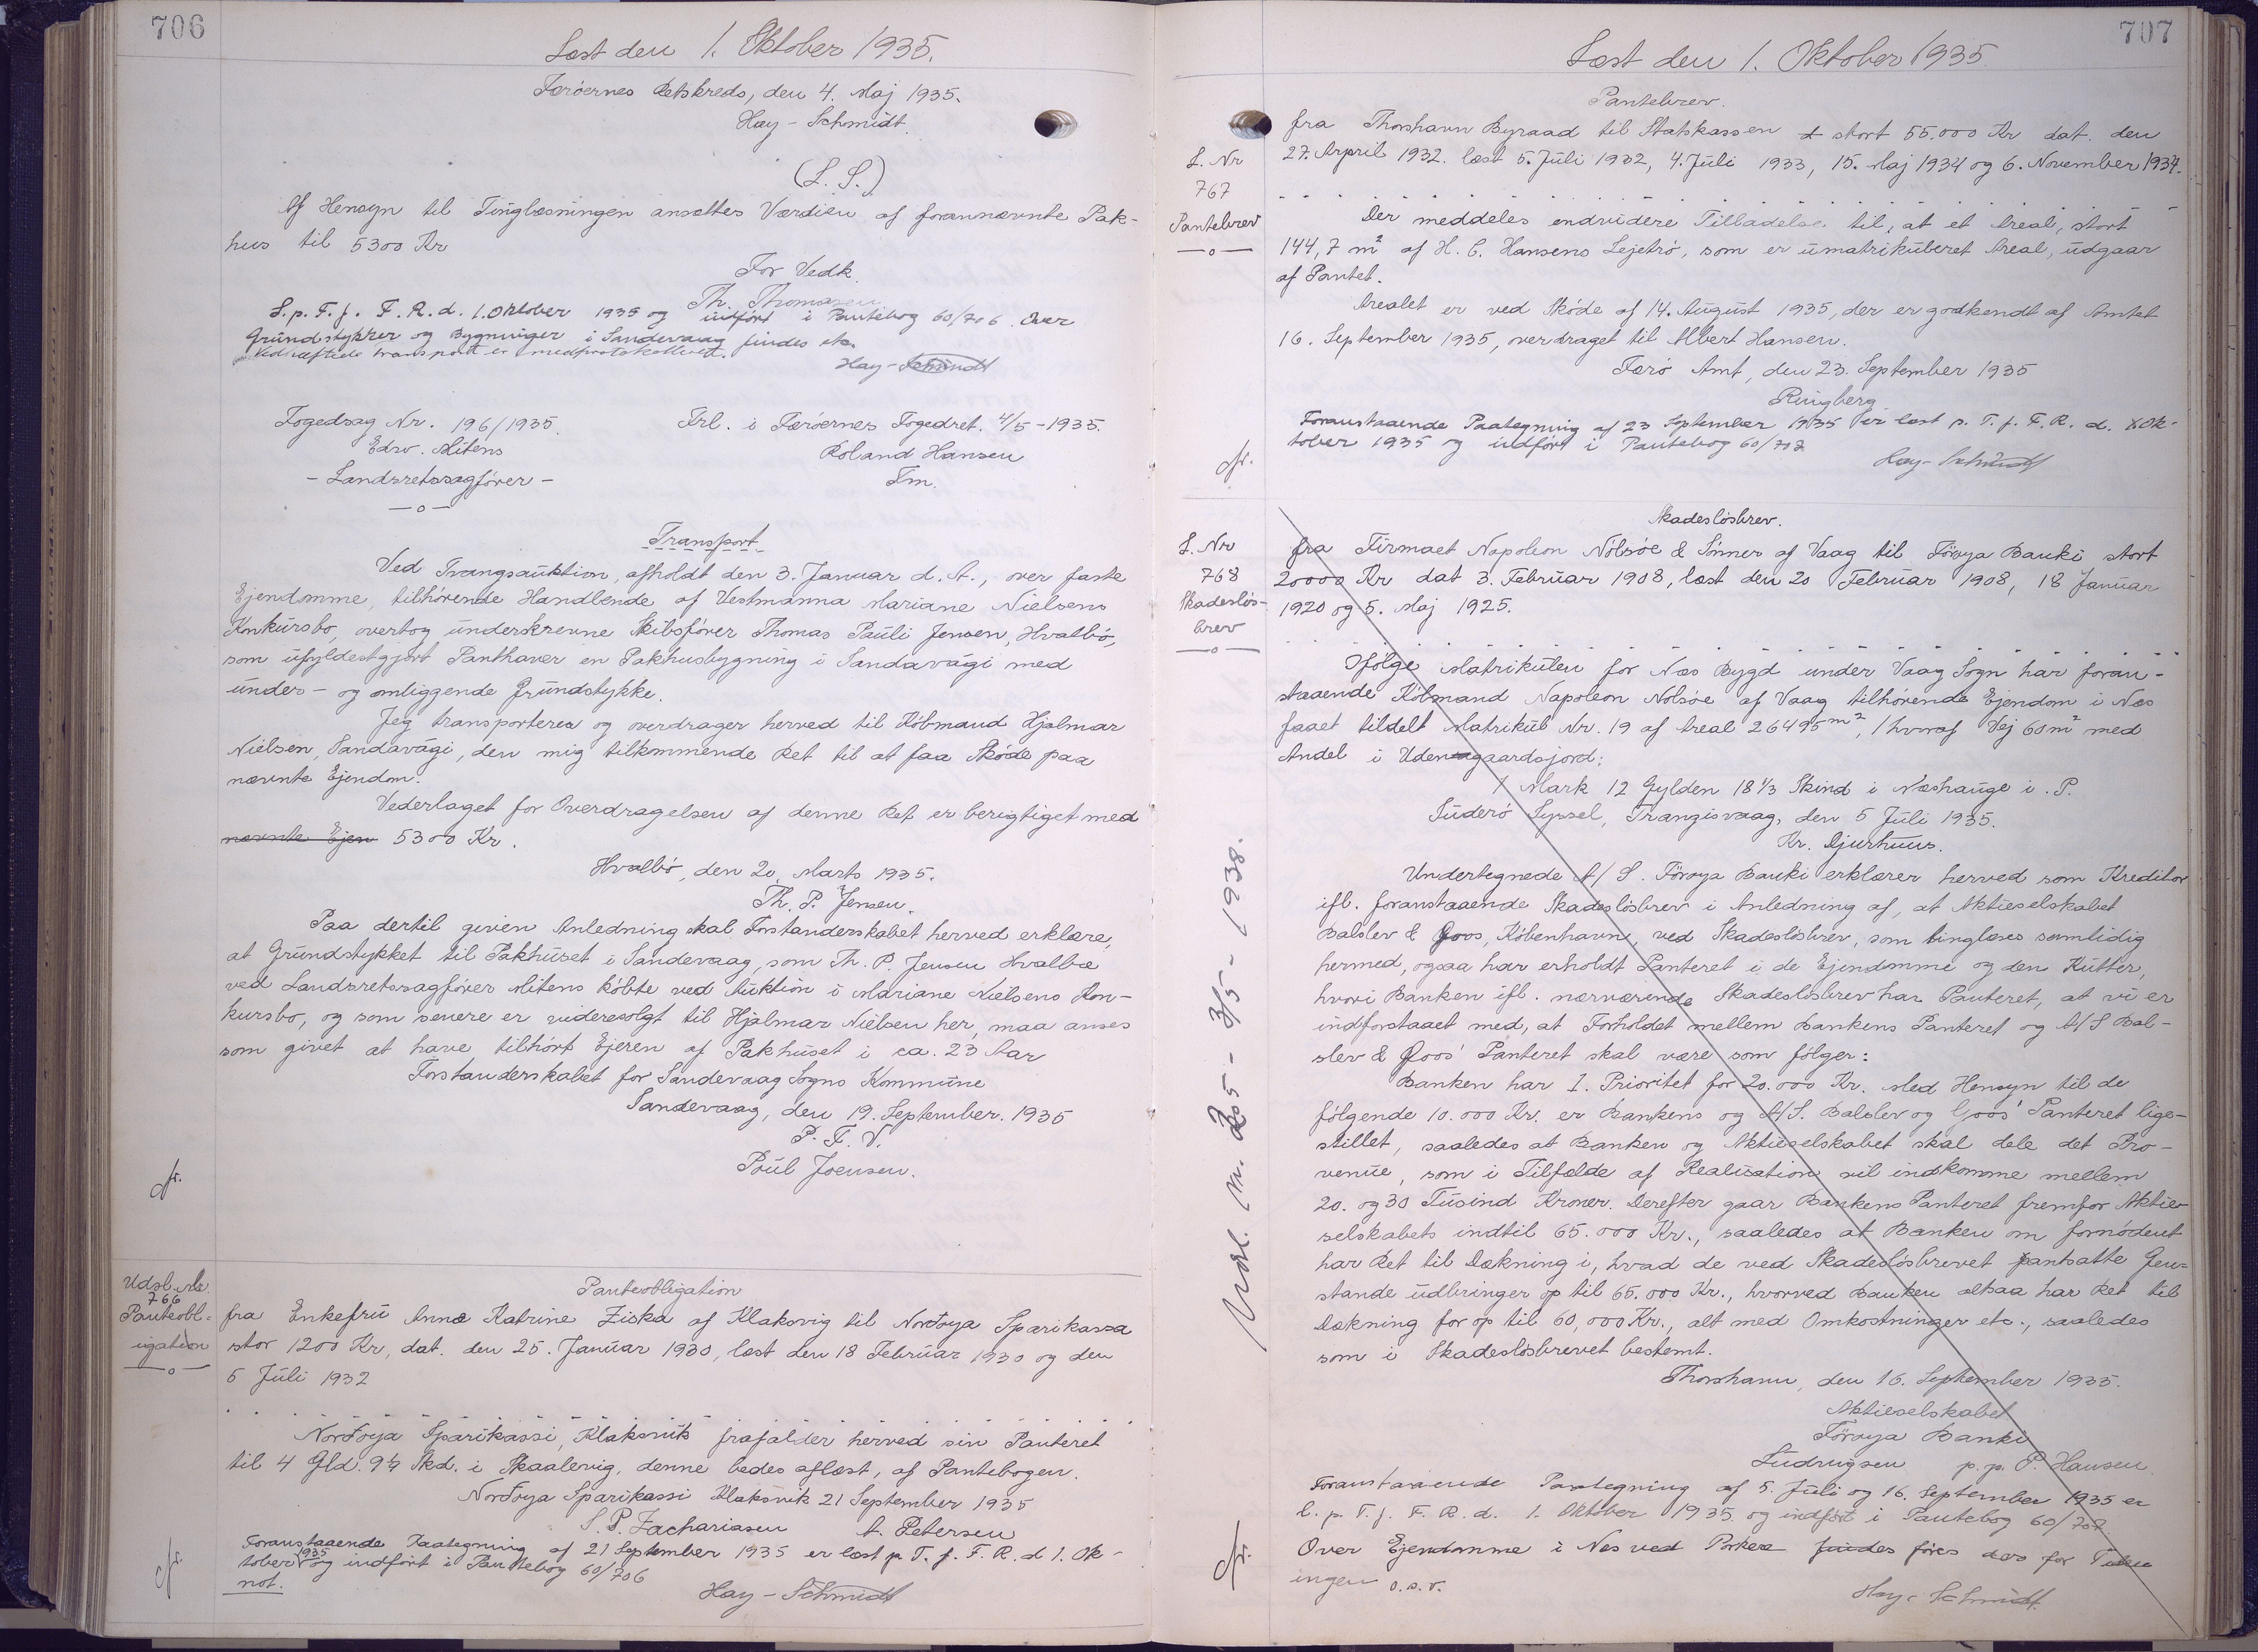 706
Læst den 1. Oktober 1935.
Færøernes Retskreds, den 4. Maj 1935.
Hay-Schmidt.
(L. S.)
Af Hensyn til Tinglæsningen ansættes Værdien af forannævnte Pak-
hus til 5300 Kr
For Vedk.
Th. Thomasen
L. p. T. f. F. R. d. 1. Oktober 1935 og indført i Pantebog 60/706. Over
Grundstykker og Bygninger i Sandevaag findes
Vedhæftede transport er medprotokolleret.
Hay-Schmidt
Fogedsag Nr. 196/1935.
Edw. Mitens
- Landsretssagfører -
—o—
Frl. i Færøernes Fogedret. 4/5-1935.
Roland Hansen
Fm.
Transport
Ved Tvangsauktion, afholdt den 3. Januar d. A., over faste
Ejendomme, tilhørende Handlende af Vestmanna Mariane Nielsens
Konkursbo, overtog underskrevne Skibsfører Thomas Pauli Jensen, Hvalbø,
som ufyldestgjort Panthaver en Pakhusbygning i Sandavági med
under- og omliggende Grundstykke.
Jeg transporterer og overdrager herved til Købmand Hjalmar
Nielsen, Sandavági, den mig tilkommende Ret til at faa Skøde paa
nævnte Ejendom.
Vederlaget for Overdragelsen af denne Ret er berigtiget med
nævnte Ejen 5300 Kr.
Hvalbø, den 20. Marts 1935.
Th. P. Jensen.
Paa dertil given Anledning skal Forstanderskabet herved erklære,
at Grundstykket til Pakhuset i Sandevaag, som Th. P. Jensen Hvalbø
ved Landsretssagfører Mitens købte ved Auktion i Mariane Nielsens Kon-
kursbo, og som senere er videresolgt til Hjalmar Nielsen her, maa anses
som givet at have tilhørt Ejeren af Pakhuset i ca. 23 Aar
Forstanderskabet for Sandevaag Sogns Kommune
Sandevaag, den 19. September. 1935
P. F. V.
Poul Joensen.
Udsl. Nr.
766
Panteobl-
igation
—o—
Panteobligation
fra Enkefru Anna Katrine Ziska af Klaksvig til Norðoya Sparikassa
stor 1200 Kr, dat. den 25. Januar 1930, læst den 18 Februar 1930 og den
5 Juli 1932
Norðoya Sparikassi, Klaksvik frafalder herved sin Panteret
til 4 Gld. 9¼ Skd. i Skaalevig, denne bedes aflæst, af Pantebogen.
Norðoya Sparikassi Klaksvik 21 September 1935
S. P. Zachariasen A. Petersen
Foranstaaende Paategning af 21 September 1935 er læst p. T. f. F. R. d 1. Ok-
tober 1935 og indført i Pantebog 60/706
not.
Hay-Schmidt
707
Læst den 1. Oktober 1935
L. Nr
767
Pantebrev
—o—
Pantebrev.
fra Thorshavn Byraad til Statskassen stort 55.000 Kr dat. den
27. April 1932. læst 5. Juli 1932, 4. Juli 1933, 15. Maj 1934 og 6. November 1934.
Der meddeles endvidere Tilladelse til, at et Areal, stort
144,7 m² af H. C. Hansens Lejetrø, som er umatrikuleret Areal, udgaar
af Pantet.
Arealet er ved Skøde af 14. August 1935, der er godkendt af Amtet
16. September 1935, overdraget til Albert Hansen.
Færø Amt, den 23. September 1935
Ringberg
Foranstaaende Paategning af 23 September 1935 er læst p. T. f. F. R. d. 1. Ok-
tober 1935 og indført i Pantebog 60/707
Hay-Schmidt
L. Nr
768
Skadesløs-
brev
—o—
Skadesløsbrev.
fra Firmaet Napoleon Nolsøe & Sønner af Vaag til Föroya Banki stort
20000 Kr dat 3. Februar 1908, læst den 20 Februar 1908, 18 Januar
1920 og 5. Maj 1925.
Ifølge Matrikulen for Næs Bygd under Vaag Sogn har foran-
staaende Købmand Napoleon Nolsøe af Vaag tilhørende Ejendom i Næs
faaet tildelt Matrikul Nr. 19 af Areal 26495 m², / hvoraf Vej 60 m² med
Andel i Udengaardsjord:
1 Mark 12 Gylden 18⅓ Skind i Næshauge i. P.
Suderø Syssel, Trangisvaag, den 5 Juli 1935.
Kr. Djurhuus.
Undertegnede A/S. Föroya Banki erklærer herved som Kreditor
ifl. foranstaaende Skadesløsbrev i Anledning af, at Aktieselskabet
Balslev & Goos, København, ved Skadesløsbrev, som tinglæses samtidig
hermed, ogsaa har erholdt Panteret i de Ejendomme og den Kutter,
hvori Banken ifl. nærværende Skadesløsbrev har Panteret, at vi er
indforstaaet med, at Forholdet mellem Bankens Panteret og A/S Bal-
slev & Goos' Panteret skal være som følger:
Banken har 1. Prioritet for 20.000 Kr. Med Hensyn til de
følgende 10.000 Kr. er Bankens og A/S. Balslev og Goos' Panteret lige-
stillet, saaledes at Banken og Aktieselskabet skal dele det Pro-
venue, som i Tilfælde af Realisation vil indkomme mellem
20. og 30 Tusind Kroner. Derefter gaar Bankens Panteret fremfor Aktie-
selskabets indtil 65.000 Kr., saaledes at Banken om fornødent
har Ret til Dækning i, hvad de ved Skadesløsbrevet pantsatte Gen-
stande udbringer op til 65.000 Kr., hvorved Banken altsaa har Ret til
Dækning for op til 60,000 Kr., alt med Omkostninger etc., saaledes
som i Skadesløsbrevet bestemt.
Thorshavn, den 16. September 1935.
Aktieselskabet
Föroya Banki
Ludvigsen p. p. P. Hansen
Foranstaaende Paategning af 5. Juli og 16. September 1935 er
l. p. T. f. F. R. d. 1. Oktober 1935. og indført i Pantebog 60/707.
Over Ejendomme i Næs ved Porkere findes føres des for
ingen o. s. v.
Hay-Schmidt.
3/5-1938.